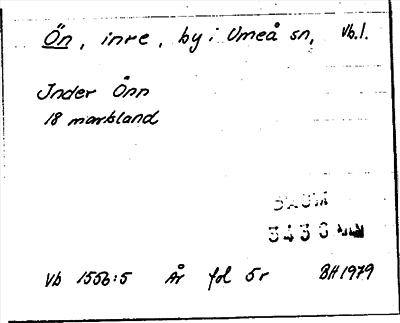 Ön, inre, by i Umeå sn, Vb.l.
Inder Önn
18 markland
3436
Vb 1556:5 År fol 5r BH 1979